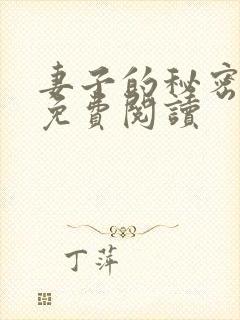 妻子的秘密
免費閱讀
丁萍